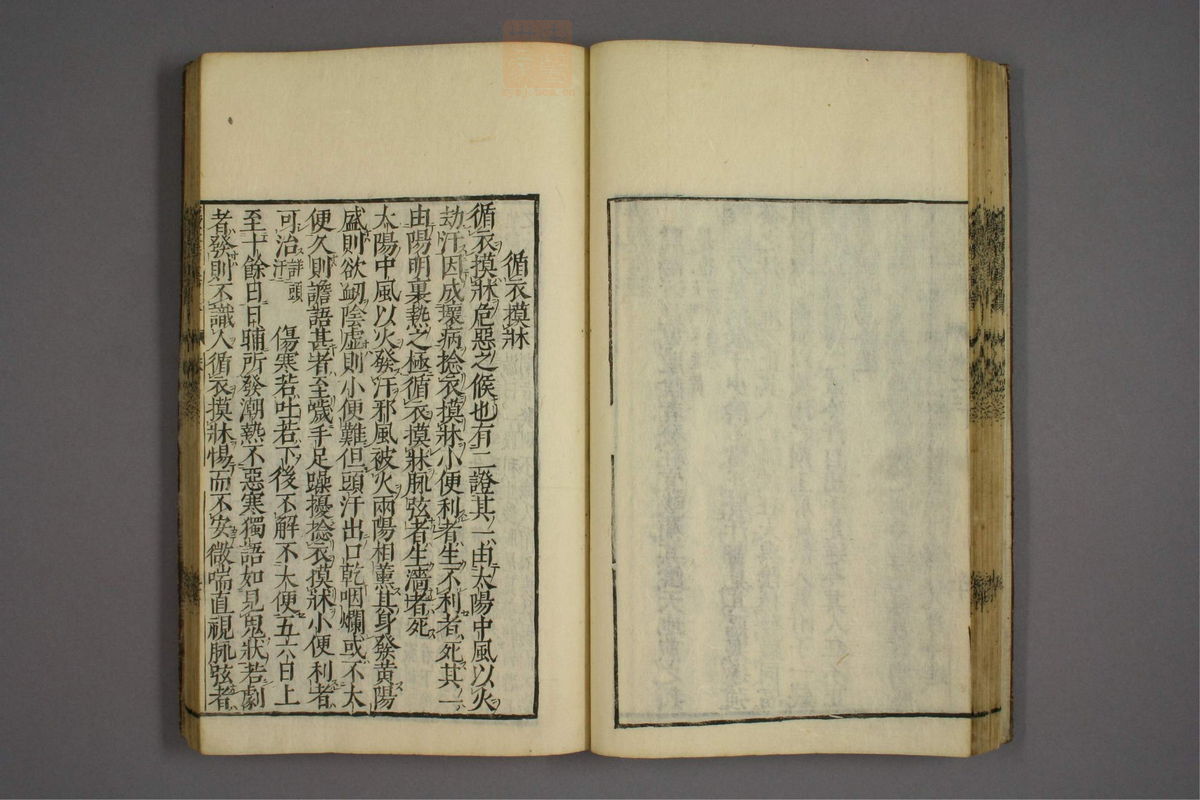 循衣摸牀
循衣摸牀危惡之候也有二證其一由太陽中風以火
劫汗因成壞病捻衣摸牀小便利者生不利者死其一
由陽明裏熱之極循衣摸牀脉弦者生濇者死
太陽中風以火發汗邪風被火兩陽相薰其身發黄陽
盛則欲衂陰虛則小便難但頭汗出口乾咽爛或不大
便久則譫語甚者至噦手足躁擾捻衣摸牀小便利者
可治詳頭汗 傷寒若吐若下後不解不大便五六日上
至十餘日日晡所發潮熱不惡寒獨語如見鬼狀若劇
者發則不識人循衣摸牀惕而不安微喘直視脉弦者